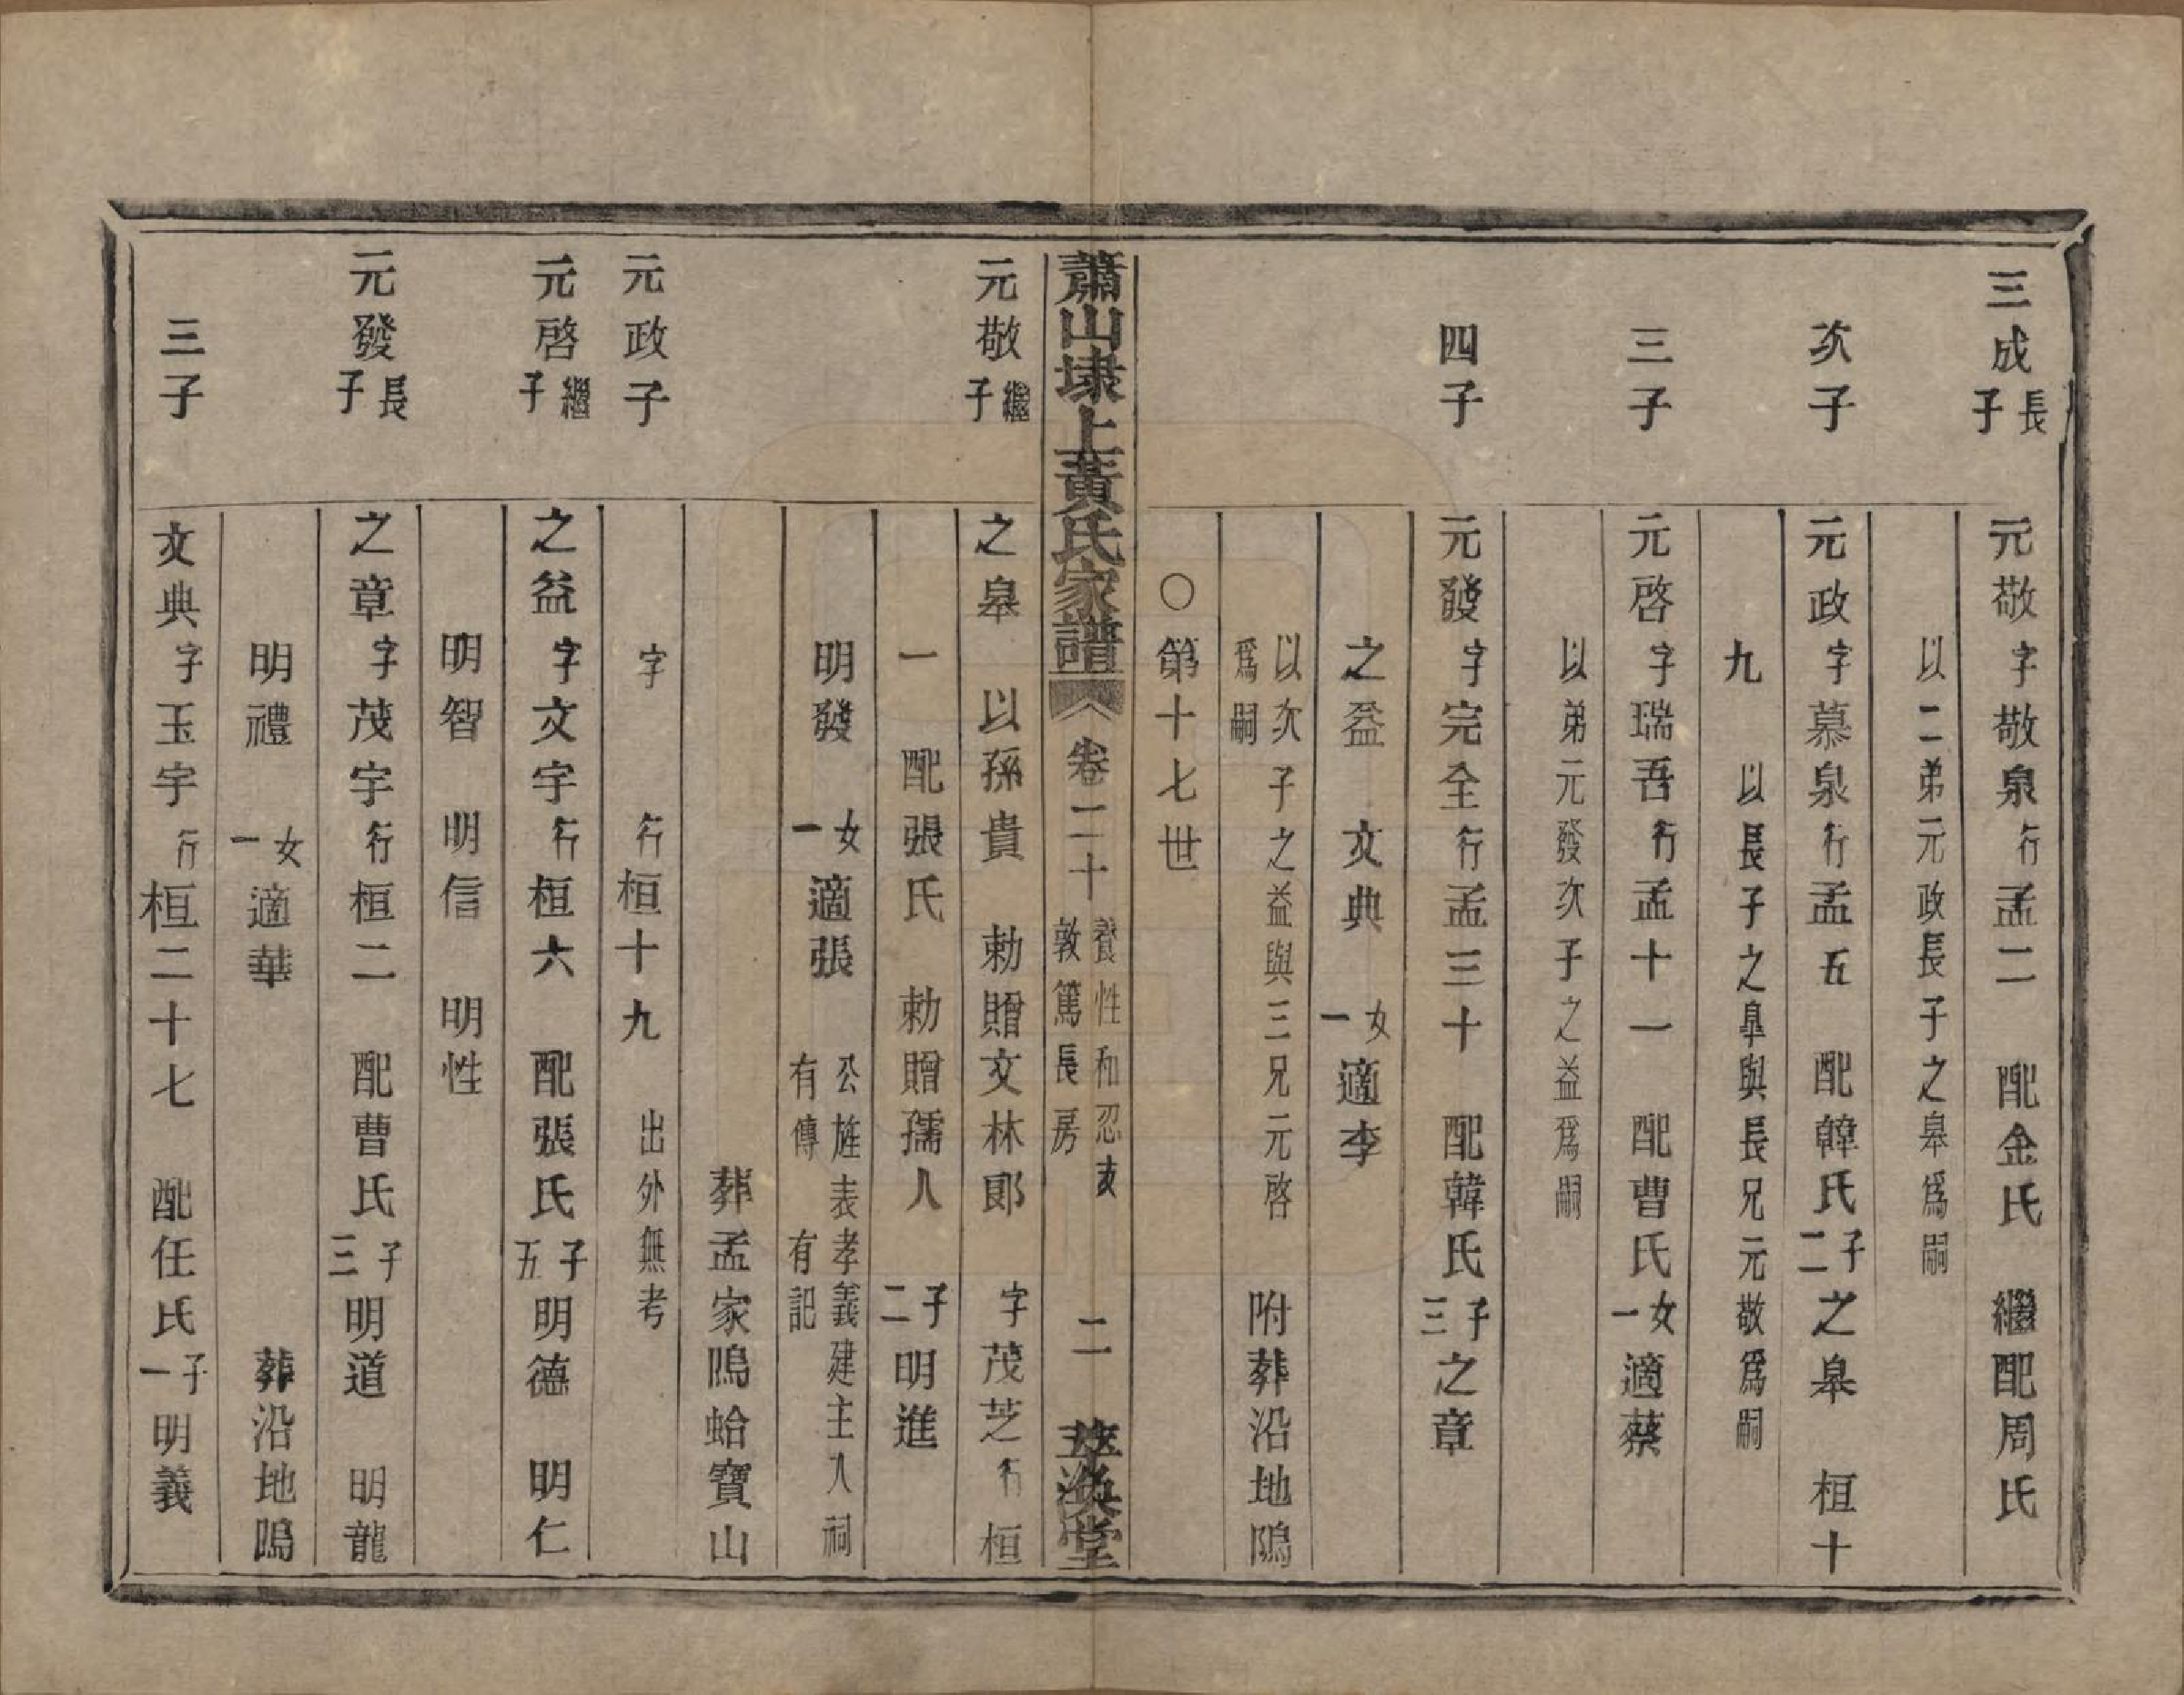 三成長子
元敬字敬泉行孟二　配金氏　繼配周氏
以二弟元政長子之皋爲嗣
次子
元政字慕泉行孟五　配韓氏子二之皋　桓十
九　以長子之皐與長兄元敬爲嗣
三子
元啓字瑞吾行孟十一　配曹氏女一適蔡
以弟元發次子之益爲嗣
四子
元發字完全行孟三十　配韓氏子三之章
之益　文典　女一適李
以次子之益與三兄元啓
爲嗣
附葬沿地隖
○第十七世
蕭山埭上黃氏家譜　卷二十　養性和忍支
敦篤長房　二　萃渙堂
元敬繼子
之皋　以孫貴　勅贈文林郎　字茂芝行桓
一　配張氏　勅贈孺人　子二明進
明發　女一適張　公旌表孝義建主入祠
有傳　有記
葬孟家隖蛤寶山
元政子
字　行桓十九　出外無考
元啓繼子
之益字文宇行桓六　配張氏子五明德　明仁
明智　明信　明性
元發長子
之章字茂宇行桓二　配曹氏子三明道　明龍
明禮　女一適華　葬沿地隖
三子
文典字玉宇行桓二十七　配任氏子一明義